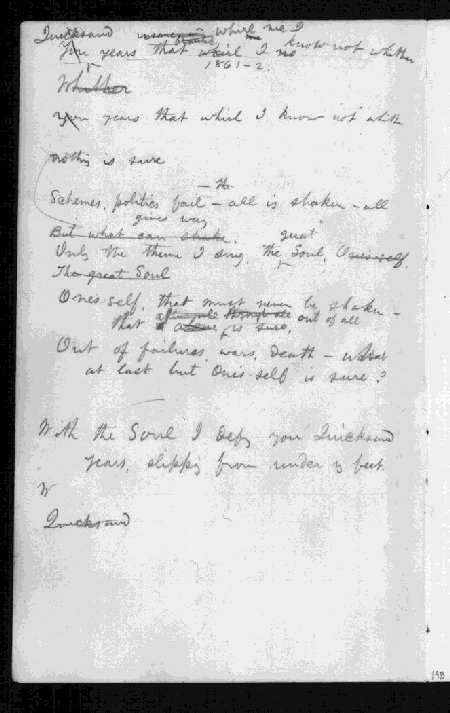 Quicksand whirl me I
years that whirl I know not whither
1861-2.
Whither
years that whirl I know not whith
nothing is sure
— the
Schemes, politics fail – all is shaken – all
gives way
But what can shake. great
Only the theme I sing, the Soul, Ones-self.
The great Soul
One's-self, that must never be shaken –
that is sure, out of all
Out of failures, wars, death – what
at last but One's-self is sure?
With the Soul I defy you Quicksand
years, slipping from under my feet.
W
Quicksand
198